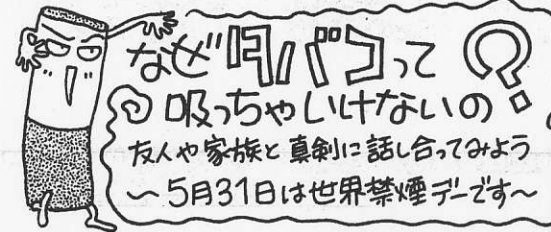 なぜタバコって
吸っちゃいけないの?
友人や家族と真剣に話し合ってみよう
～5月31日は世界禁煙デーです～